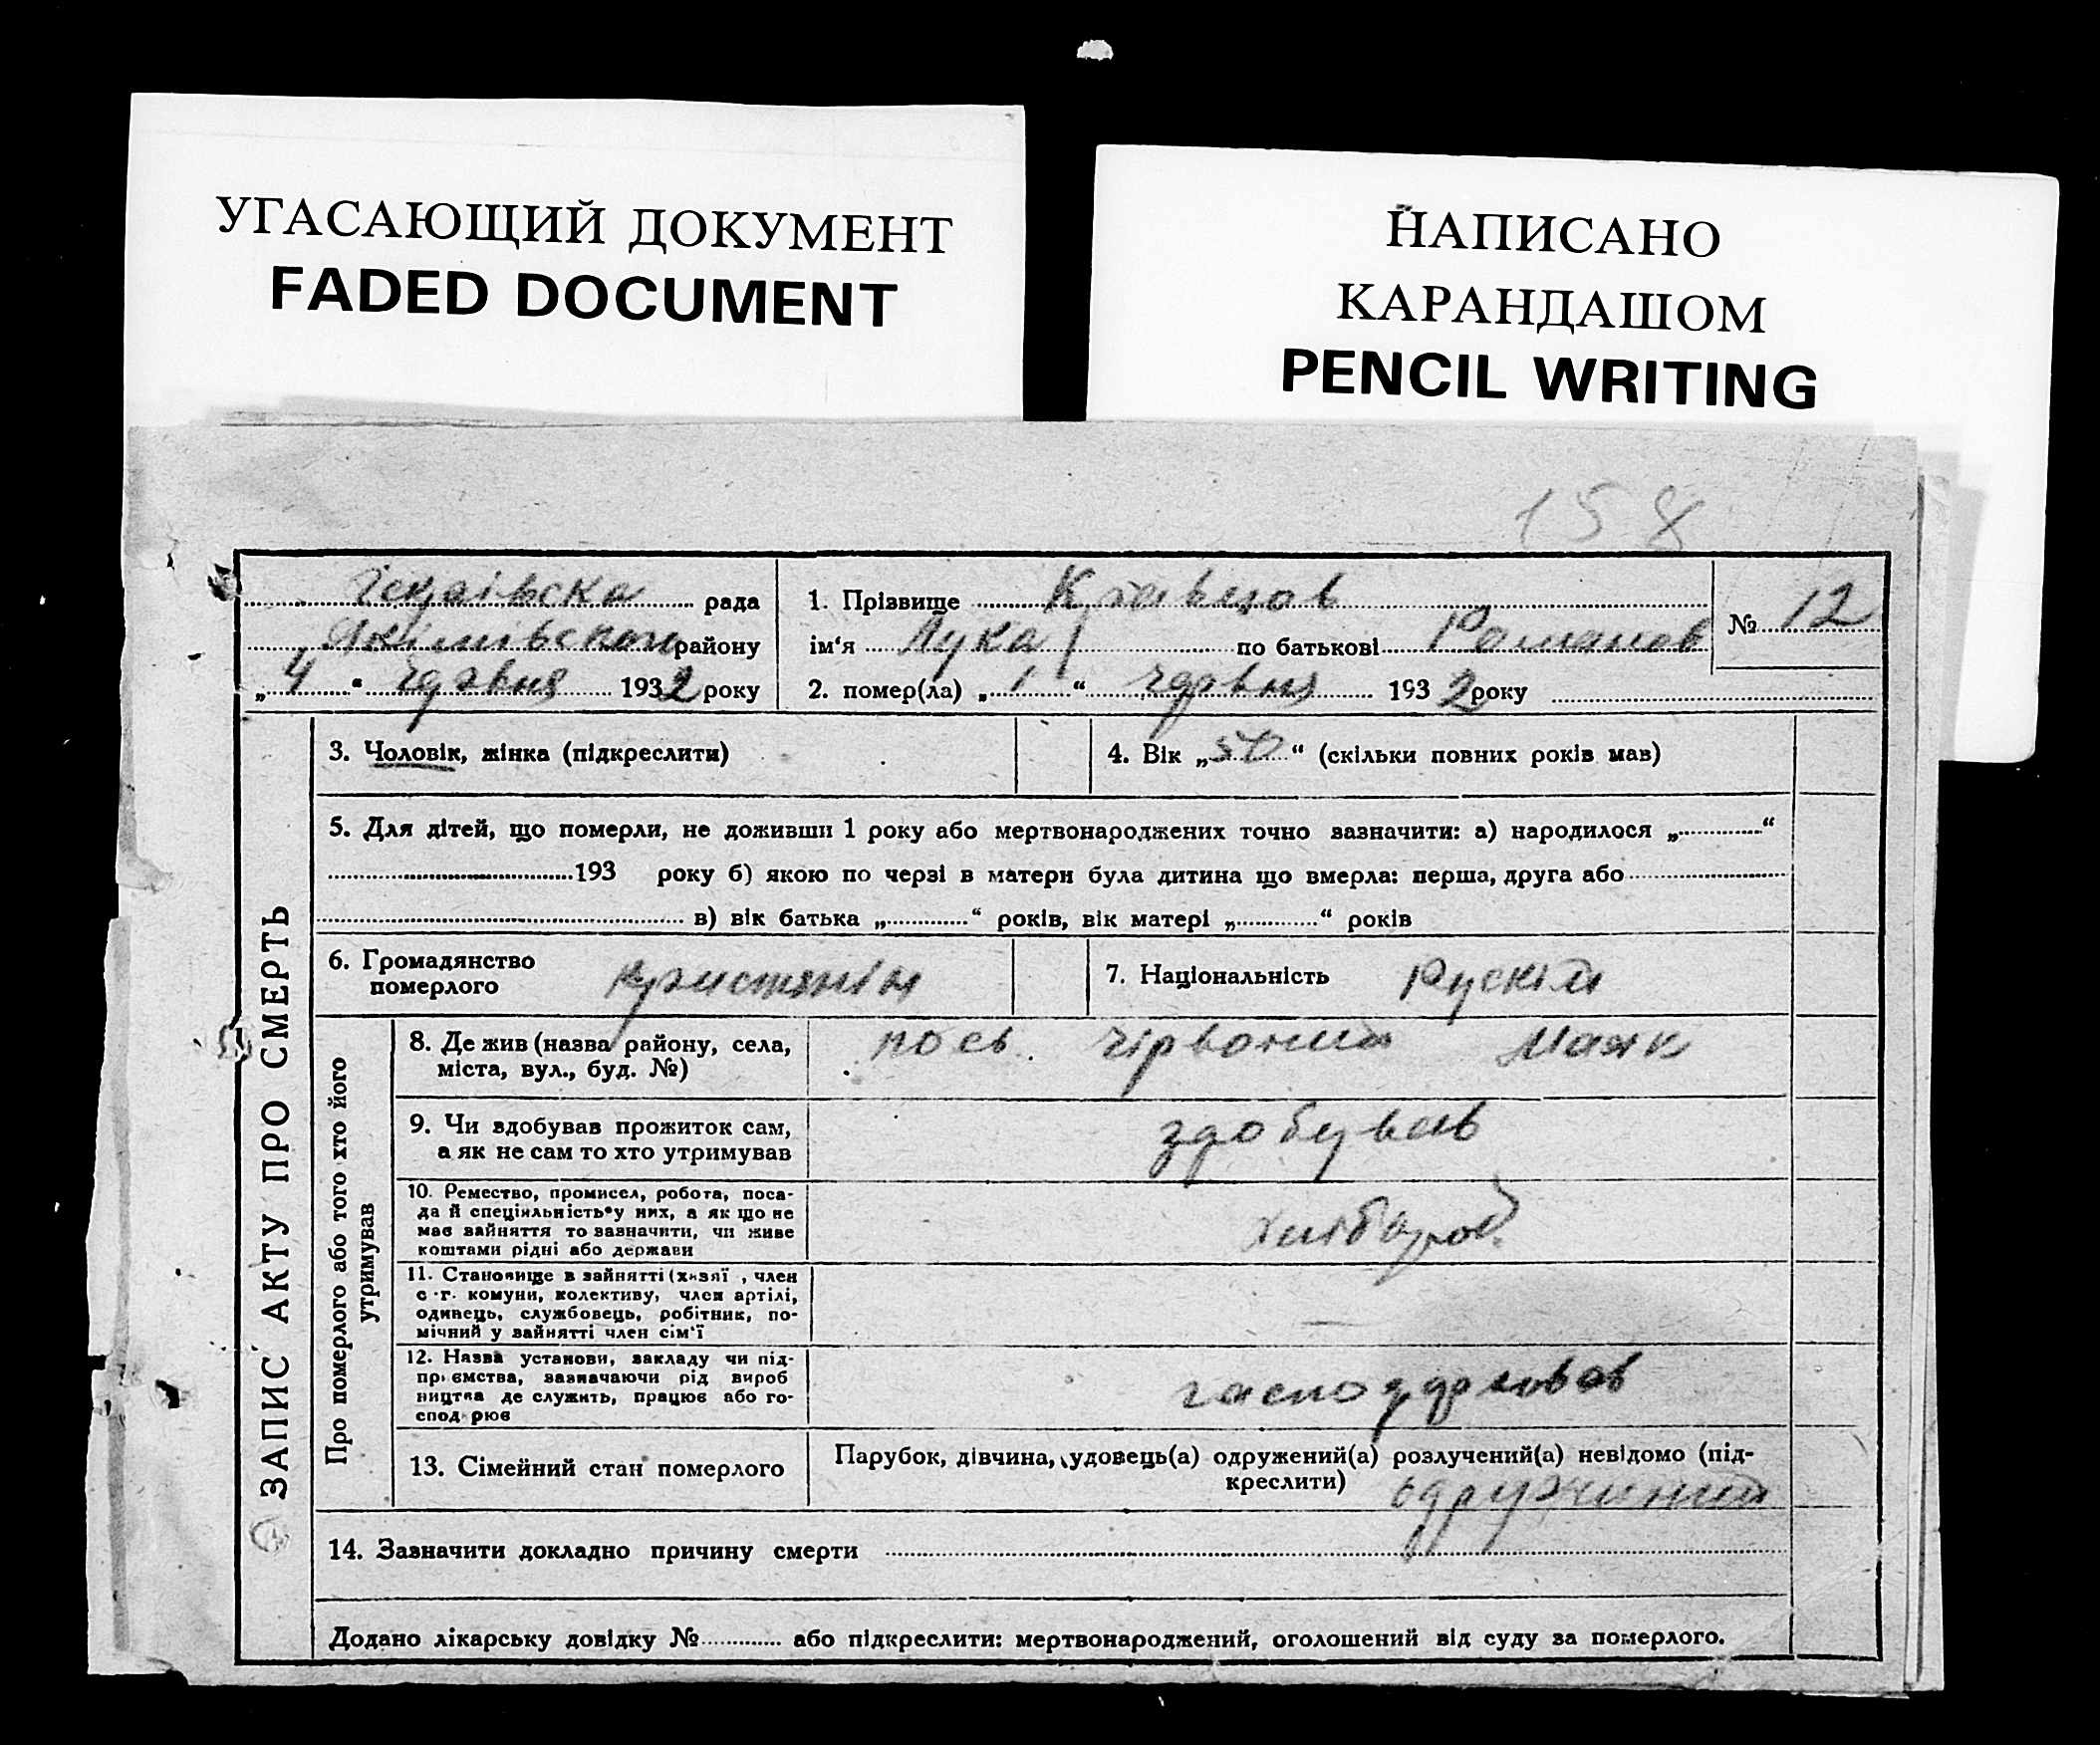 УГАСАЮЩИЙ ДОКУМЕНТ
FADED DOCUMENT
НАПИСАНО
КАРАНДАШОМ
PENCIL WRITING
158
рада
району
„4“ червня 1932 року
1. Прізвище Кравцов
ім‘я Лука по батькові Романов
2. помер(ла) „1“ червня 1932 року
№ 12
ЗАПИС АКТУ ПРО СМЕРТЬ
3. Чоловік, жінка (підкреслити)
4. Вік „50“ (скільки повних років мав)
5. Для дітей, що померли, не доживши 1 року або мертвонароджених точно зазначити: а) народилося „............“
............193 року б) якою по черзі в матери була дитина що вмерла: перша, друга або............
............ в) вік батька „............“ років, вік матері „............“ років
6. Громадянство
померлого
7. Національність Рускій
Про померлого або того хто його
утримував
8. Де жив (назва району, села,
міста, вул., буд. №)
пось. Чірвоний Маяк
9. Чи здобував прожиток сам,
а як не сам то хто утримував
здобував
10. Ремество, промисел, робота, поса-
да й спеціяльність у них, а як що не
має зайняття то зазначити, чи живе
коштами рідні або держави
хлібороб
11. Становище в зайнятті (хазяї , член
с.-г. комуни, колективу, член артілі,
одинець, службовець, робітник, по-
мічний у зайнятті член сім‘ї
12. Назва установи, закладу чи під-
приємства, зазначаючи рід вироб
ництва де служить, працює або го-
сподарює
13. Сімейний стан померлого
Парубок, дівчина, удовець(а) одружений(а) розлучений(а) невідомо (під-
креслити) одружиний
14. Зазначити докладно причину смерти
Додано лікарську довідку №............ або підкреслити: мертвонароджений, оголошений від суду за померлого.